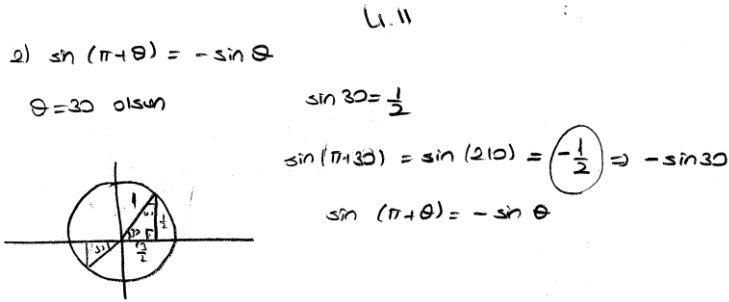 4.11
2) sin (π+θ) = - sin θ
θ=30 olsun
sin 30 = 1/2
sin(π+30) = sin (210) = -1/2 => - sin30
sin (π+θ) = - sin θ
1
1/2
30
√3/2
30